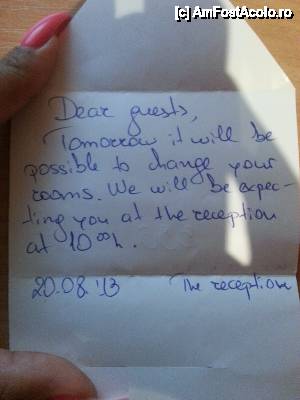 (c) AmFostAcolo.ro
Dear guests,
Tomorrow it will be
possible to change your
rooms. We will be expec-
ting you at the reception
at 10ººh.
20.08.'13 The reception